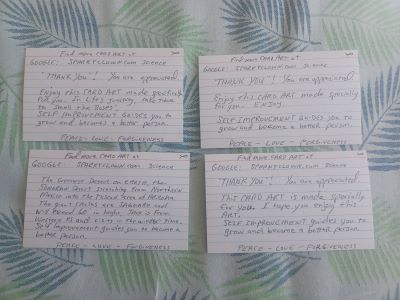 Find more CARD ART at
GOOGLE: SMARTCLOWN.com Science
THANK YOU! You are appreciated.
Enjoy this CARD ART made specially
for you. In life's journey, take time
to smell the roses.
SELF IMPROVEMENT GUIDES you to
grow and become a better person.
PEACE - LOVE - FORGIVENESS
Find more CARD ART at
GOOGLE: SMARTCLOWN.com Science
THANK YOU! You are appreciated.
Enjoy this CARD ART made specially
for you. ENJOY.
SELF IMPROVEMENT GUIDES you to
grow and become a better person.
PEACE - LOVE - FORGIVENESS
Find more CARD ART at
GOOGLE: SMARTCLOWN.com Science
The Greatest Desert on EARTH, the
SONORAN Desert stretching from Northern
Mexico into the
The giant CACTUS are SAGUARO and
will exceed 60' in height. This is from
and exists in the winter time.
Self improvement guides you to become a
better person.
PEACE - LOVE - FORGIVENESS
Find more CARD ART at
GOOGLE: SMARTCLOWN.com Science
THANK YOU! You are appreciated.
This CARD ART is made specially
for you. I hope you enjoy this
ART.
Self improvement guides you to
grow and become a better person.
PEACE - LOVE - FORGIVENESS